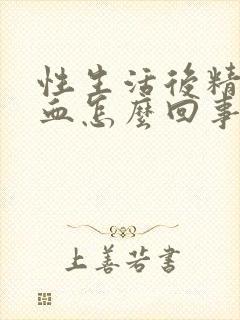 性生活後精
血怎麼回事
上善若書